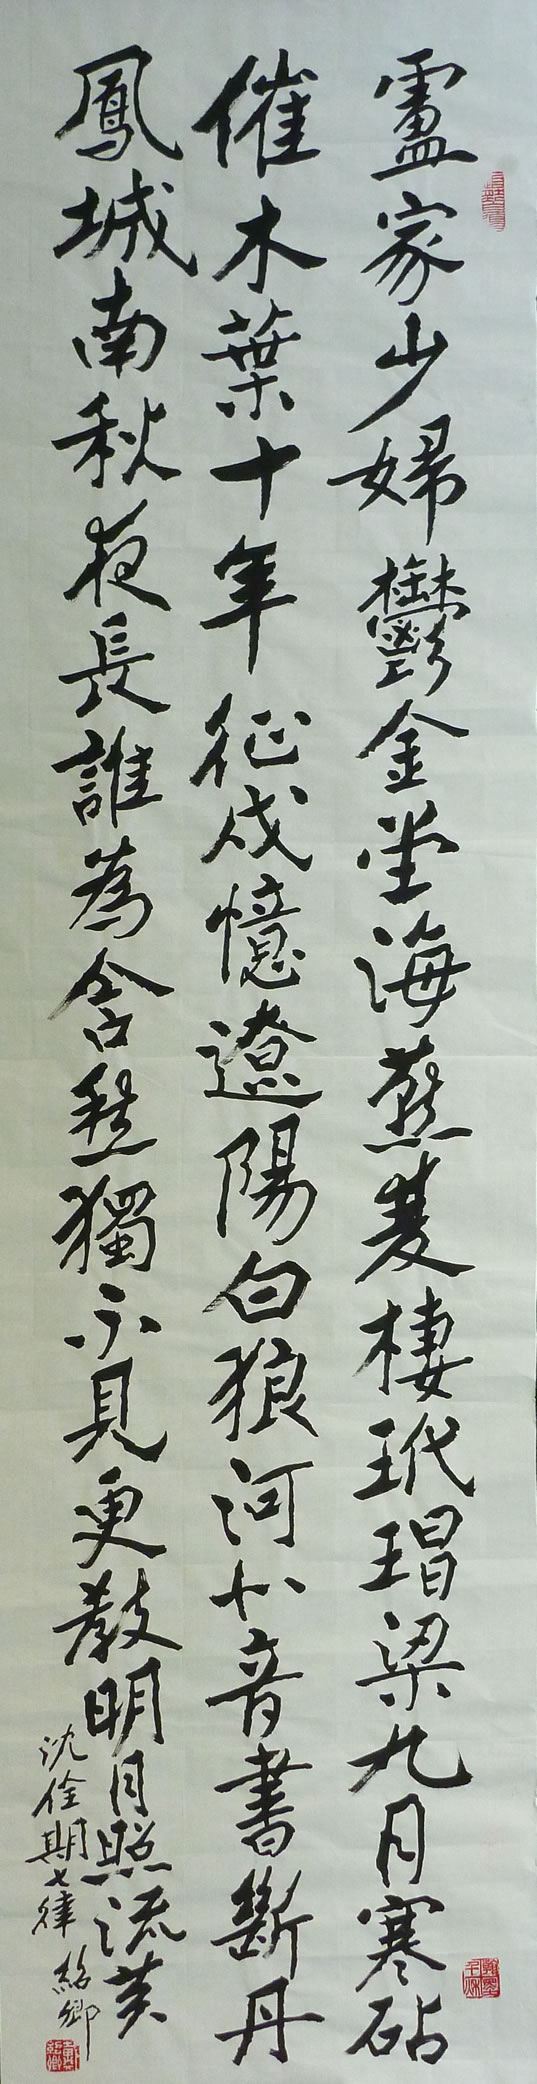 盧家少婦鬱金堂海燕雙棲玳瑁梁九月寒砧
催木葉十年征戍憶遼陽白狼河北音書斷丹
鳳城南秋夜長誰為含愁獨不見更教明月照流黄
沈佺期七律 紹卿